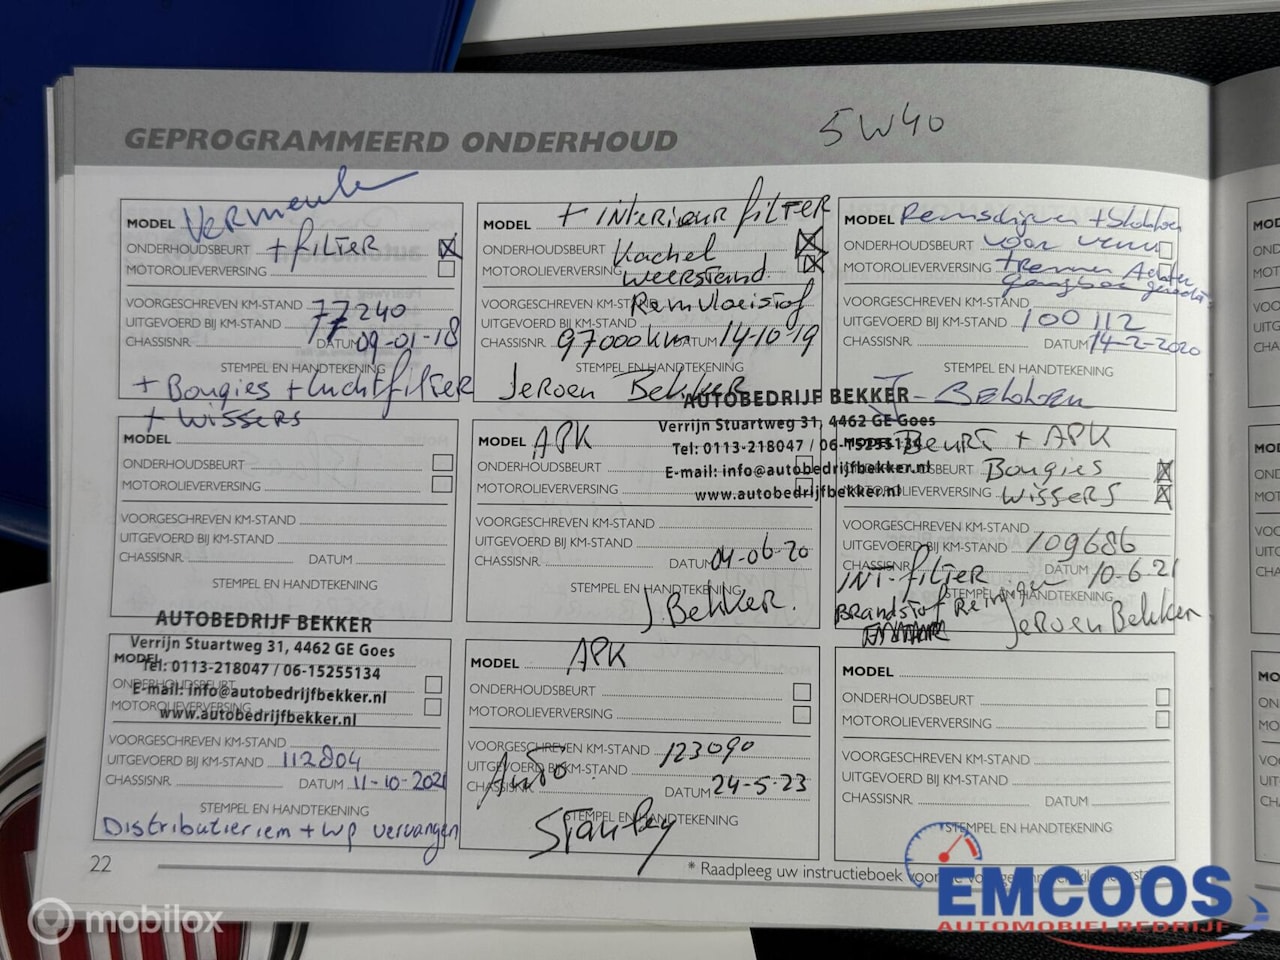 GEPROGRAMMEERD ONDERHOUD
5W40
MODEL
ONDERHOUDSBEURT + filter
MOTOROLIEVERVERSING
VOORGESCHREVEN KM-STAND
UITGEVOERD BIJ KM-STAND 77240
CHASSISNR. DATUM 09-01-18
STEMPEL EN HANDTEKENING
+ Bougies + luchtfilter
+ wissers
MODEL + interieur filter
ONDERHOUDSBEURT kachel
MOTOROLIEVERVERSING weerstand
VOORGESCHREVEN KM-STAND Remvloeistof
UITGEVOERD BIJ KM-STAND
CHASSISNR. 97000km DATUM 14-10-19
STEMPEL EN HANDTEKENING
Jeroen Bekker
MODEL Remschijven + blokken
ONDERHOUDSBEURT voor
MOTOROLIEVERVERSING + remmen Achter
VOORGESCHREVEN KM-STAND
UITGEVOERD BIJ KM-STAND 100112
CHASSISNR. DATUM 14-2-2020
STEMPEL EN HANDTEKENING
MODEL
ONDERHOUDSBEURT
MOTOROLIEVERVERSING
VOORGESCHREVEN KM-STAND
UITGEVOERD BIJ KM-STAND
CHASSISNR. DATUM
STEMPEL EN HANDTEKENING
AUTOBEDRIJF BEKKER
Verrijn Stuartweg 31, 4462 GE Goes
Tel: 0113-218047 / 06-15255134
E-mail: info@autobedrijfbekker.nl
www.autobedrijfbekker.nl
MODEL APK
ONDERHOUDSBEURT
MOTOROLIEVERVERSING
VOORGESCHREVEN KM-STAND
UITGEVOERD BIJ KM-STAND
CHASSISNR. DATUM 04-06-20
STEMPEL EN HANDTEKENING
J. Bekker.
Beurt + APK
Bougies
MOTOROLIEVERVERSING wissers
VOORGESCHREVEN KM-STAND
UITGEVOERD BIJ KM-STAND 109686
CHASSISNR. DATUM 10-6-21
INT-filter
STEMPEL EN HANDTEKENING
Brandstof Reiniger
Jeroen Bekker
AUTOBEDRIJF BEKKER
Verrijn Stuartweg 31, 4462 GE Goes
MODEL
Tel: 0113-218047 / 06-15255134
ONDERHOUDSBEURT
E-mail: info@autobedrijfbekker.nl
MOTOROLIEVERVERSING
www.autobedrijfbekker.nl
VOORGESCHREVEN KM-STAND
UITGEVOERD BIJ KM-STAND 112804
CHASSISNR. DATUM 11-10-2021
STEMPEL EN HANDTEKENING
Distributieriem + wp vervangen
MODEL APK
ONDERHOUDSBEURT
MOTOROLIEVERVERSING
VOORGESCHREVEN KM-STAND 123090
UITGEVOERD BIJ KM-STAND
Auto
CHASSISNR. DATUM 24-5-23
STEMPEL EN HANDTEKENING
Stanley
MODEL
ONDERHOUDSBEURT
MOTOROLIEVERVERSING
VOORGESCHREVEN KM-STAND
UITGEVOERD BIJ KM-STAND
CHASSISNR. DATUM
STEMPEL EN HANDTEKENING
22
* Raadpleeg uw instructieboek voor
EMCOOS
AUTOMOBIELBEDRIJF
mobilox